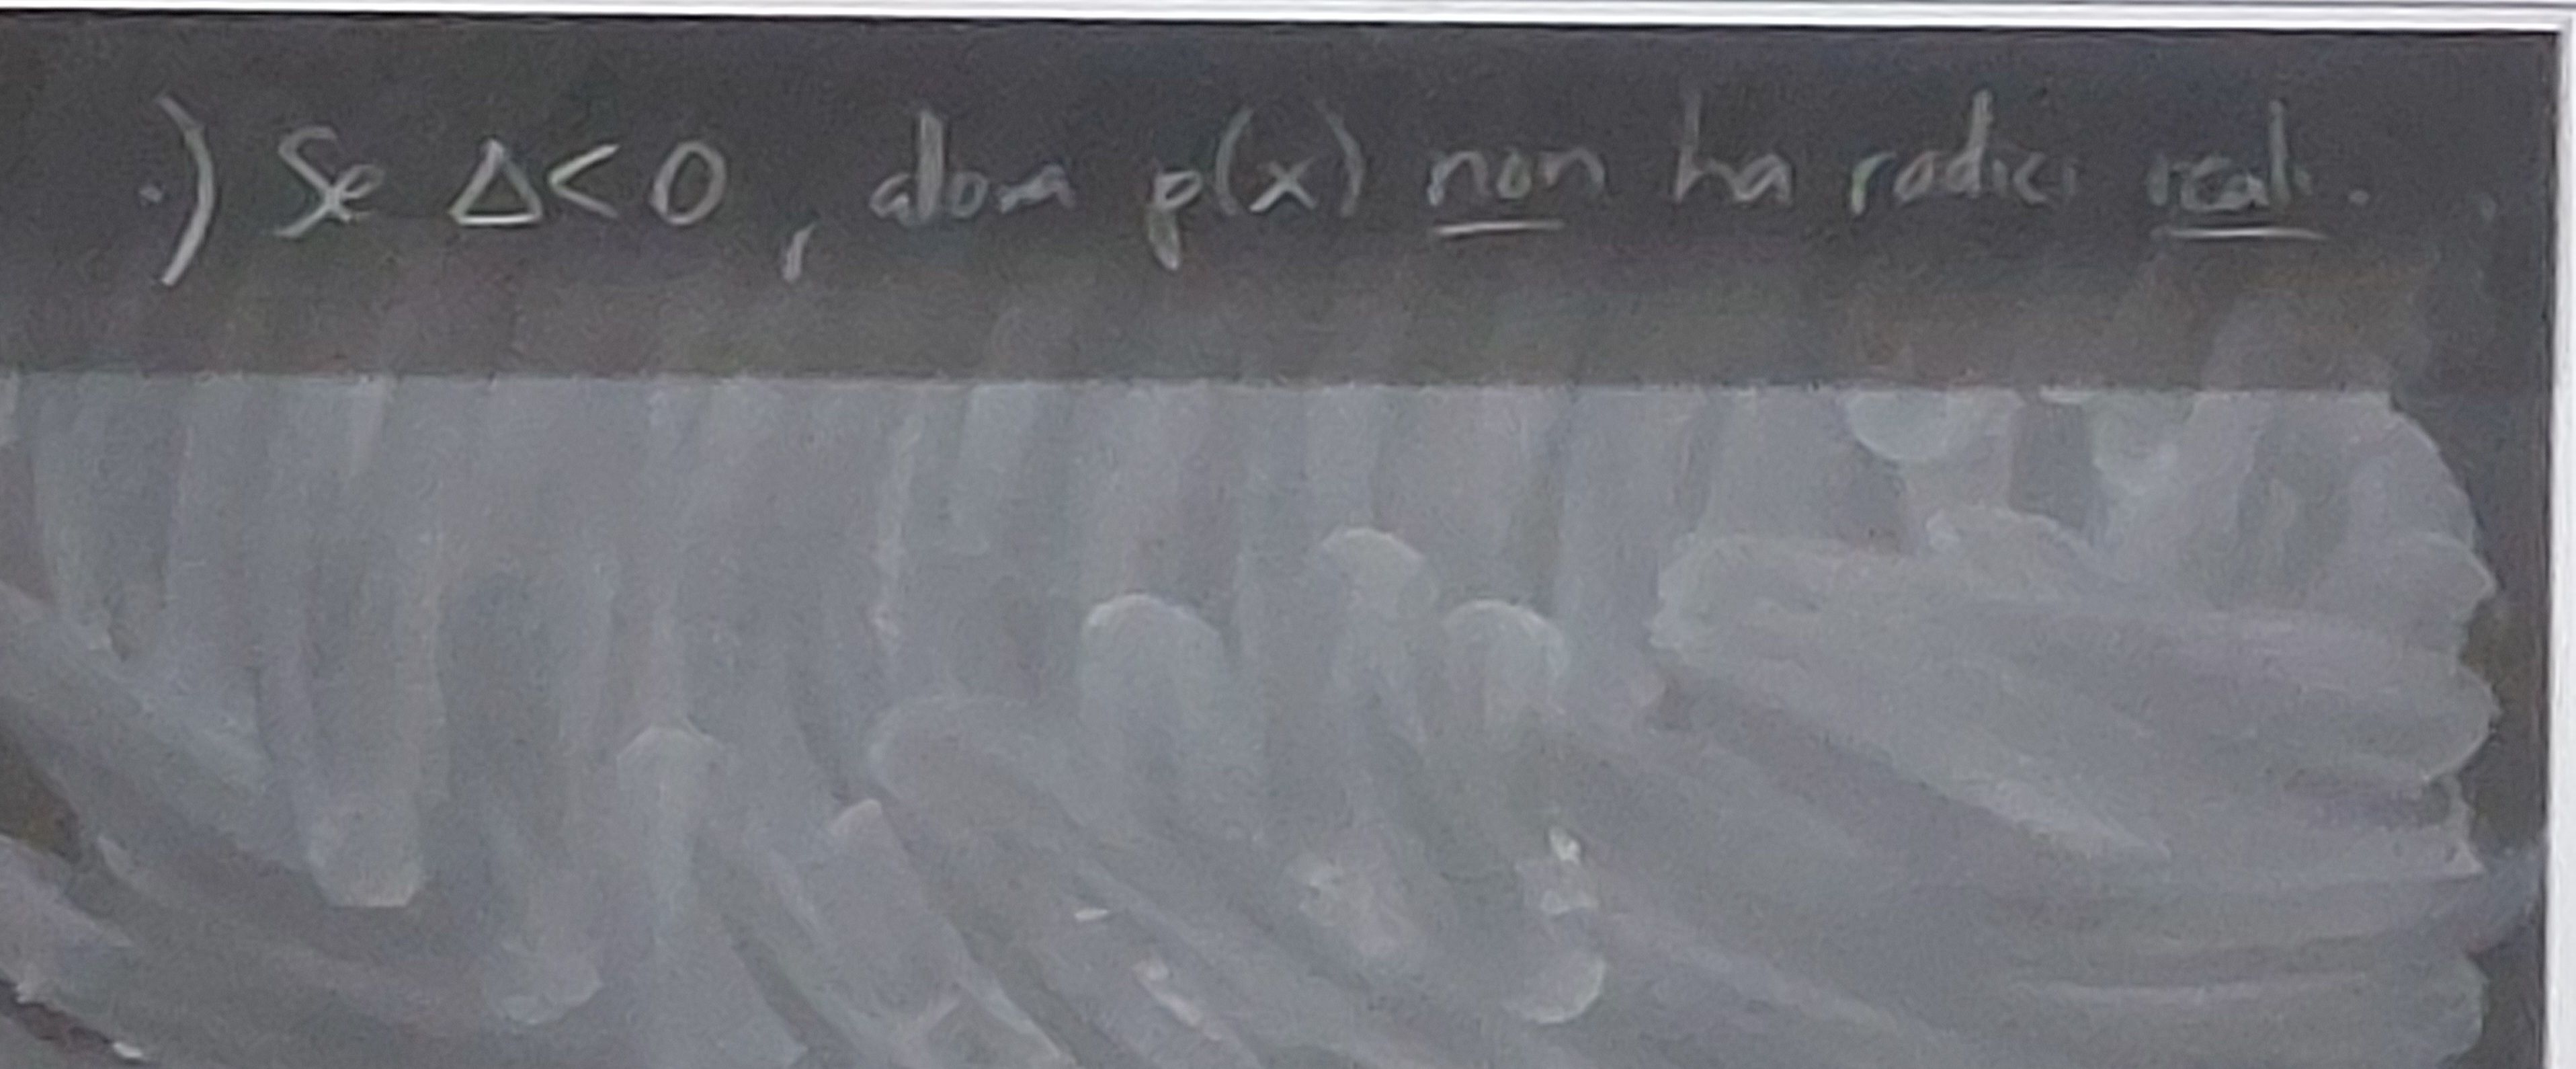 ·) Se Δ<0, allora p(x) non ha radici reali.